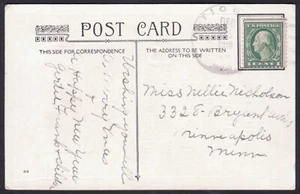 POST CARD
THIS SIDE FOR CORRESPONDENCE
THE ADDRESS TO BE WRITTEN
ON THIS SIDE
Wishing you all
a Merry Xmas
&
a Happy New Year
Miss Nellie Nicholson
3328 - Bryant
Minneapolis
Minn